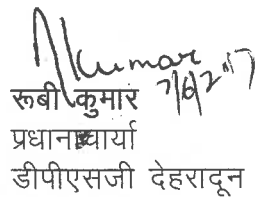 Rkumar
7/6/2017
रूबी कुमार
प्रधानाचार्या
डीपीएसजी देहरादून